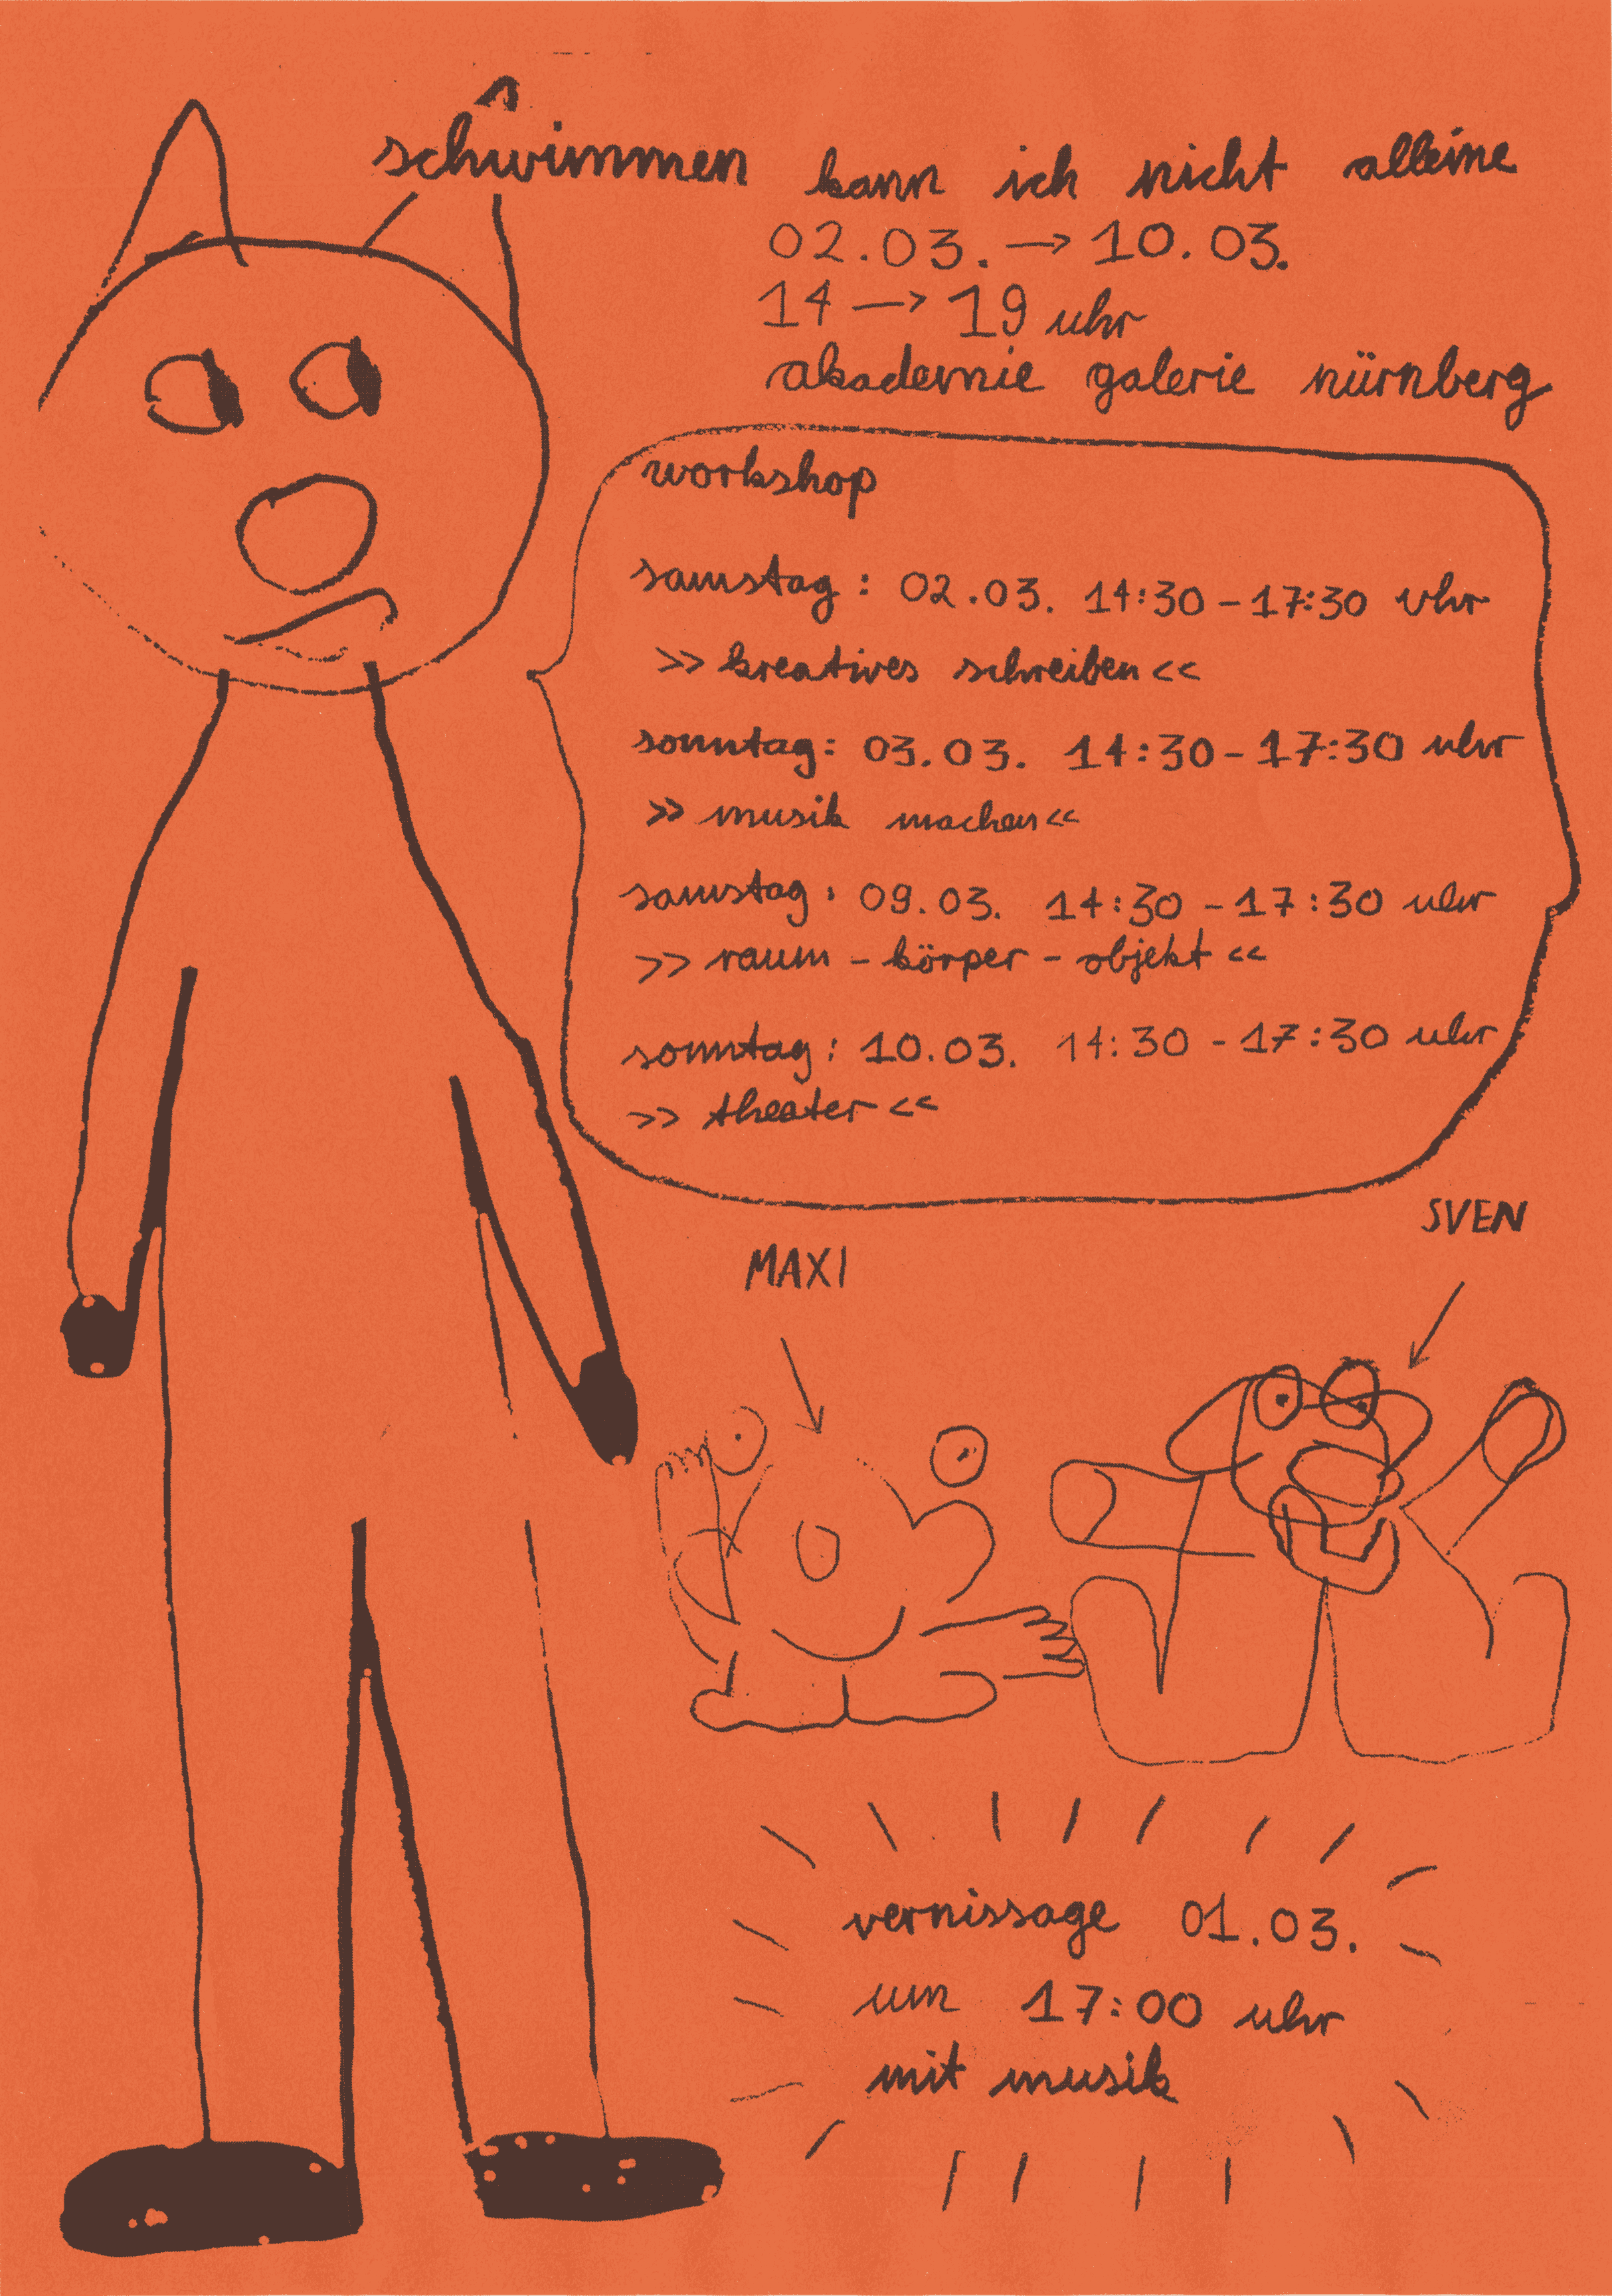 schwimmen kann ich nicht alleine
02.03. → 10.03.
14 → 19 uhr
akademie galerie nürnberg
workshop
samstag : 02.03. 14:30 - 17:30 Uhr
>> kreatives schreiben <<
sonntag: 03.03. 14:30 - 17:30 uhr
>> musik machen <<
samstag : 09.03. 14:30 - 17:30 uhr
>> raum - körper - objekt <<
sonntag : 10.03. 14:30 - 17:30 uhr
>> theater <<
SVEN
MAXI
vernissage 01.03.
um 17:00 uhr
mit musik